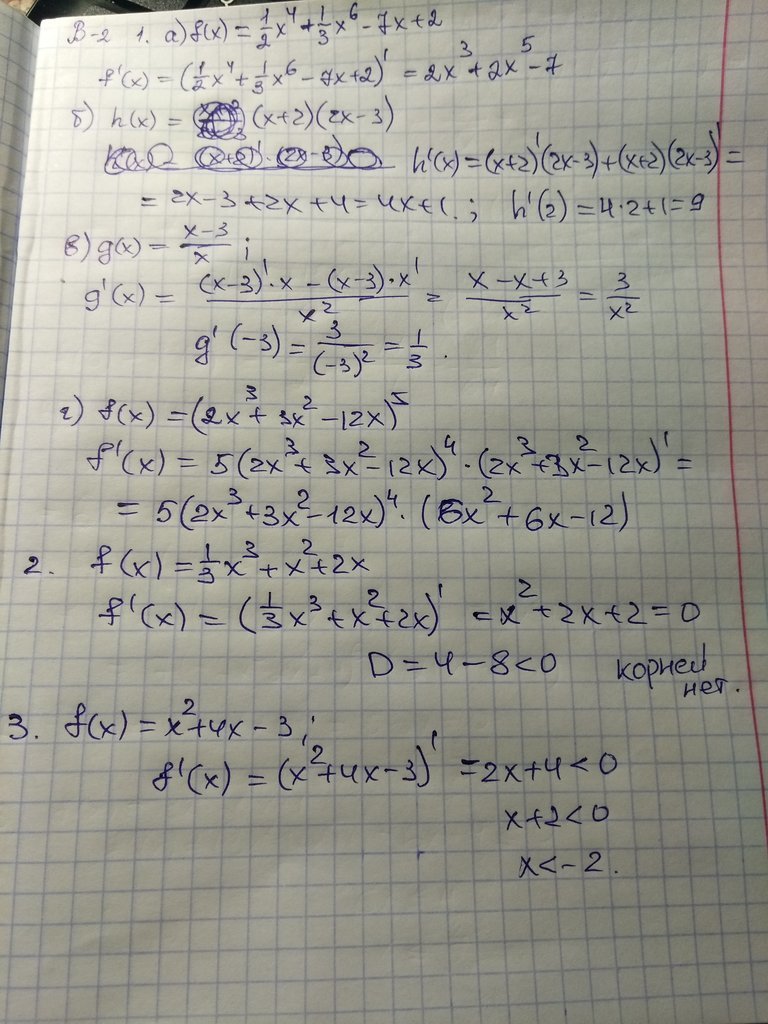 В-2 1. а) f(x) = 1/2 x⁴ + 1/3 x⁶ - 7x + 2
f'(x) = (1/2 x⁴ + 1/3 x⁶ - 7x + 2)' = 2x³ + 2x⁵ - 7
б) h(x) = (x+2)(2x-3)
h'(x) = (x+2)'(2x-3) + (x+2)(2x-3)' =
= 2x-3+2x+4 = 4x+1. ; h'(2) = 4·2+1 = 9
в) g(x) = (x-3)/x ;
g'(x) = ((x-3)'·x - (x-3)·x')/x² = (x-x+3)/x² = 3/x²
g'(-3) = 3/(-3)² = 1/3 .
г) f(x) = (2x³ + 3x² - 12x)⁵
f'(x) = 5(2x³ + 3x² - 12x)⁴ · (2x³ + 3x² - 12x)' =
= 5(2x³ + 3x² - 12x)⁴ · (6x² + 6x - 12)
2. f(x) = 1/3 x³ + x² + 2x
f'(x) = (1/3 x³ + x² + 2x)' = x² + 2x + 2 = 0
D = 4 - 8 < 0 корней
нет.
3. f(x) = x² + 4x - 3 ;
f'(x) = (x² + 4x - 3)' = 2x + 4 < 0
x + 2 < 0
x < - 2 .